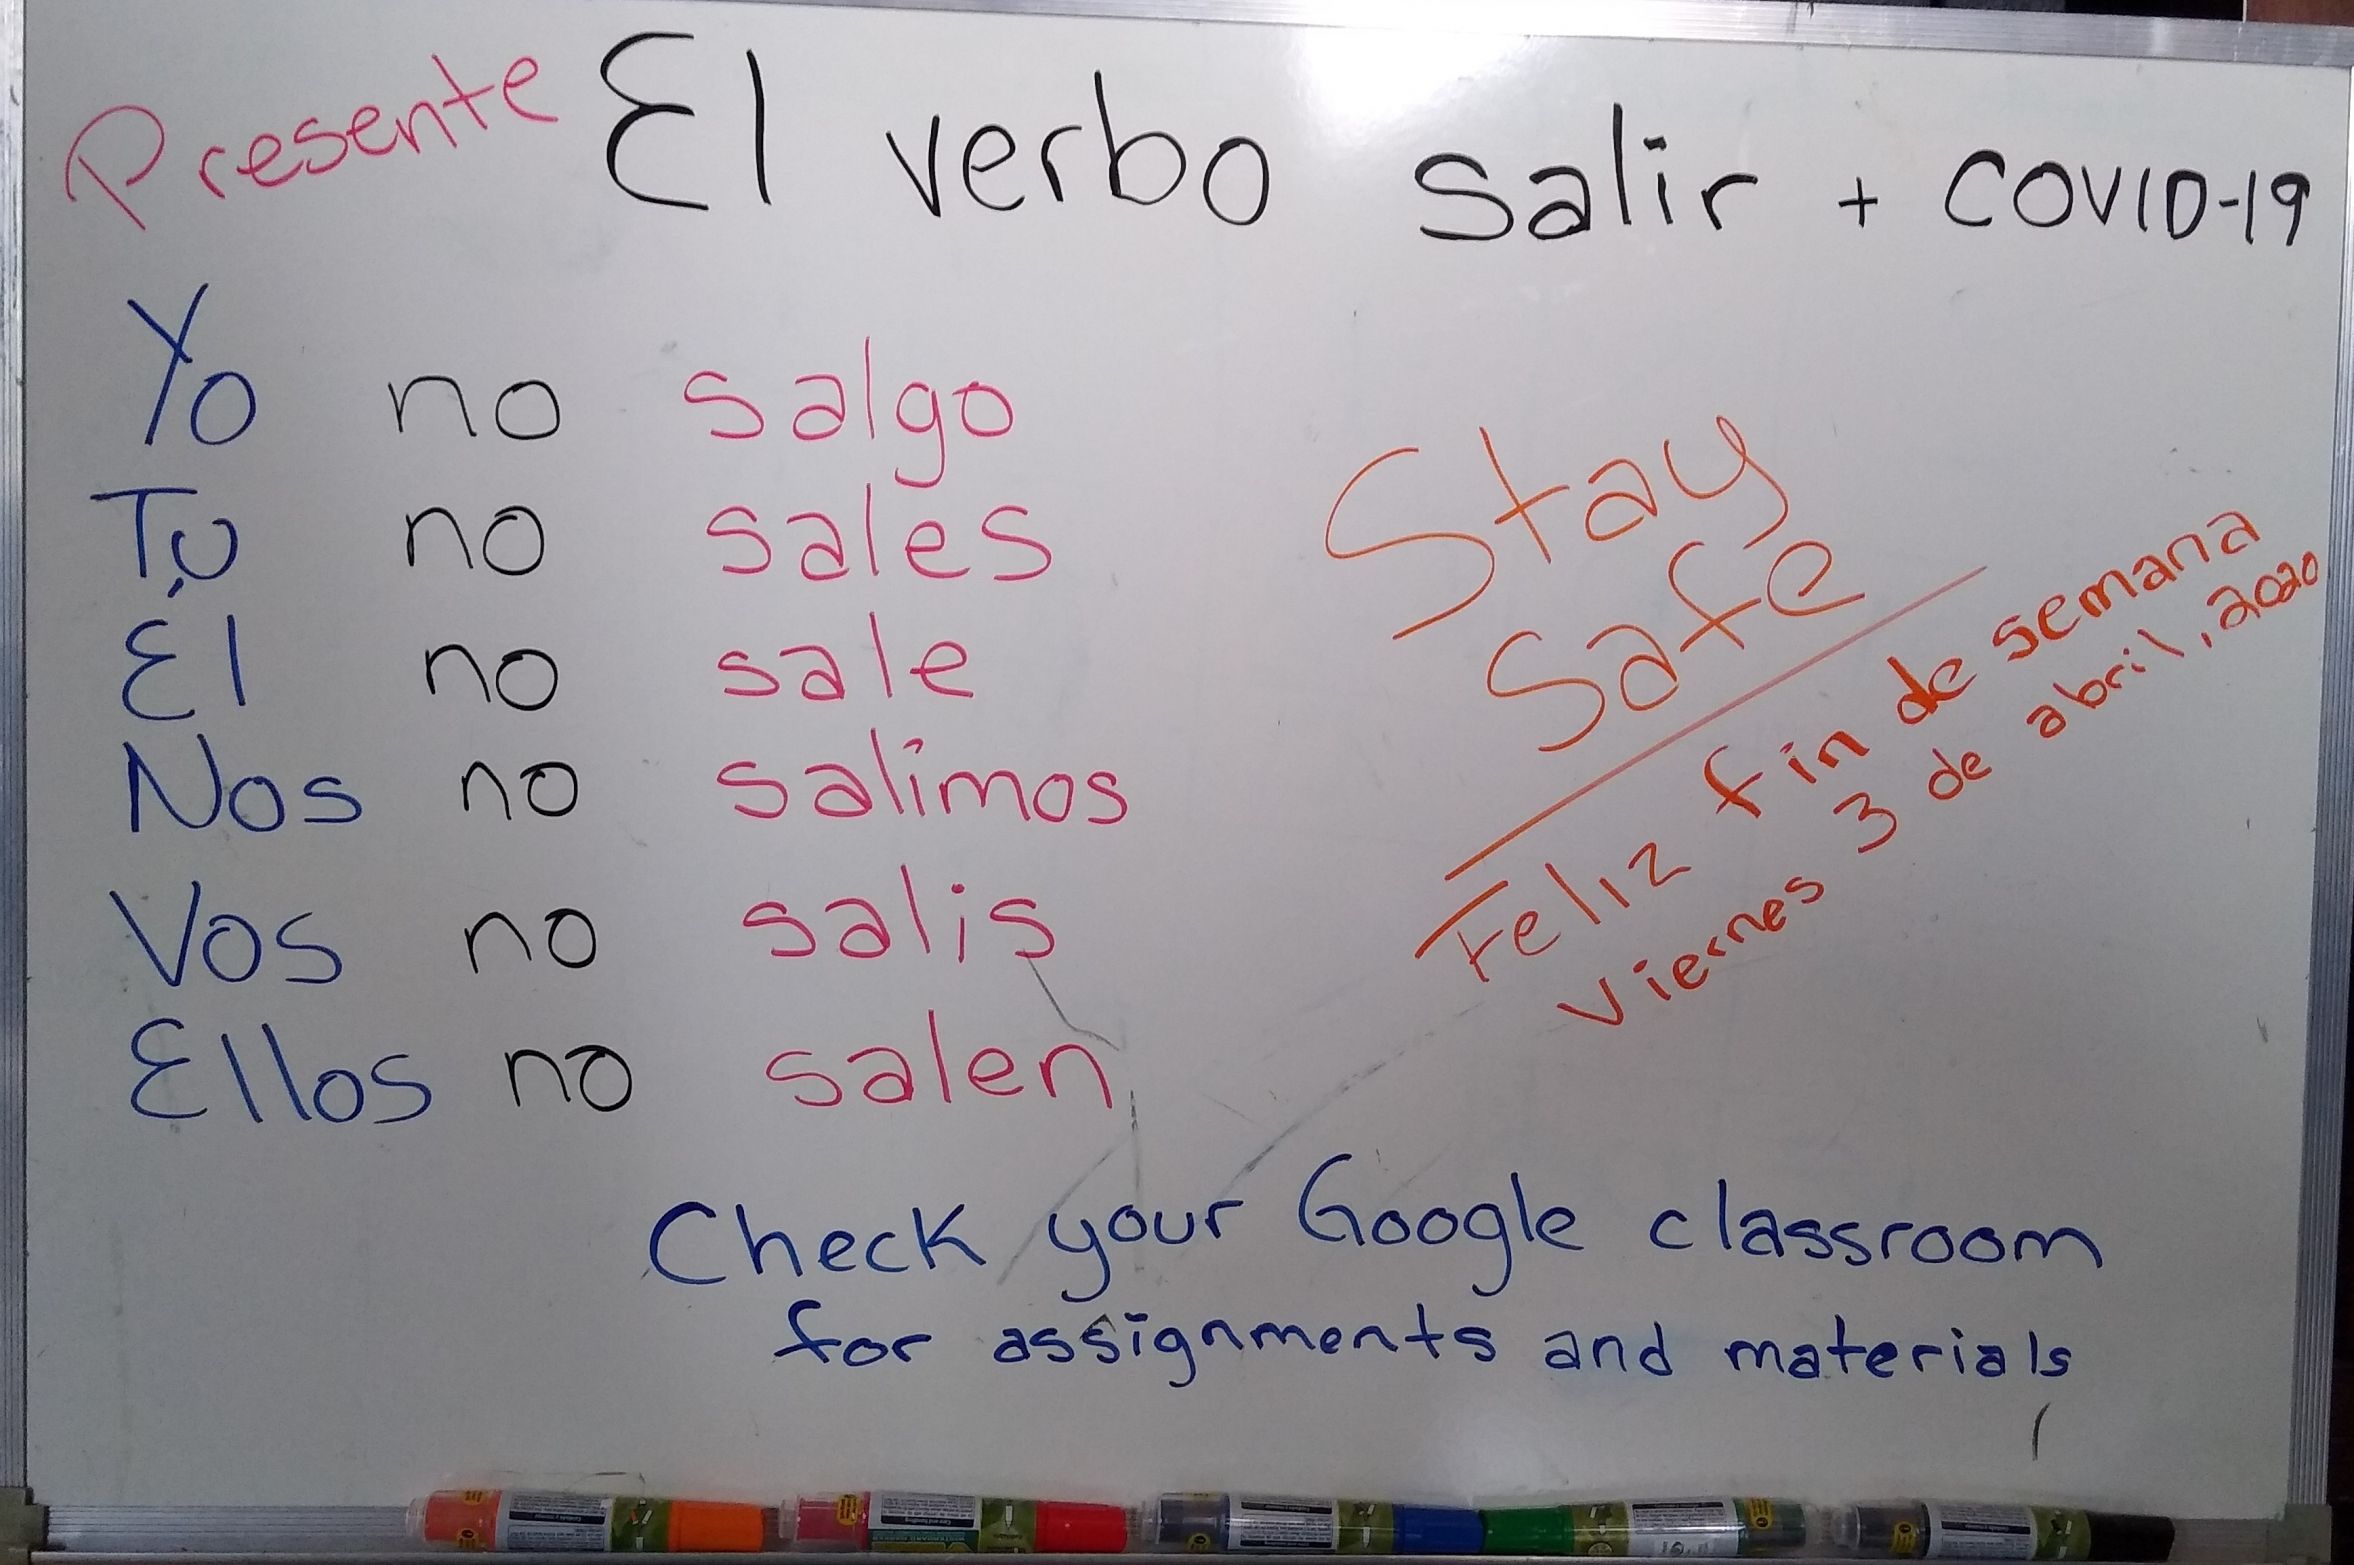 Presente El verbo salir + COVID-19
Yo no salgo
Tụ no sales
El no sale
Nos no salimos
Vos no salis
Ellos no salen
Stay
Safe
Feliz fin de semana
Viernes 3 de abril, 2020
Check your Google classroom
for assignments and materials